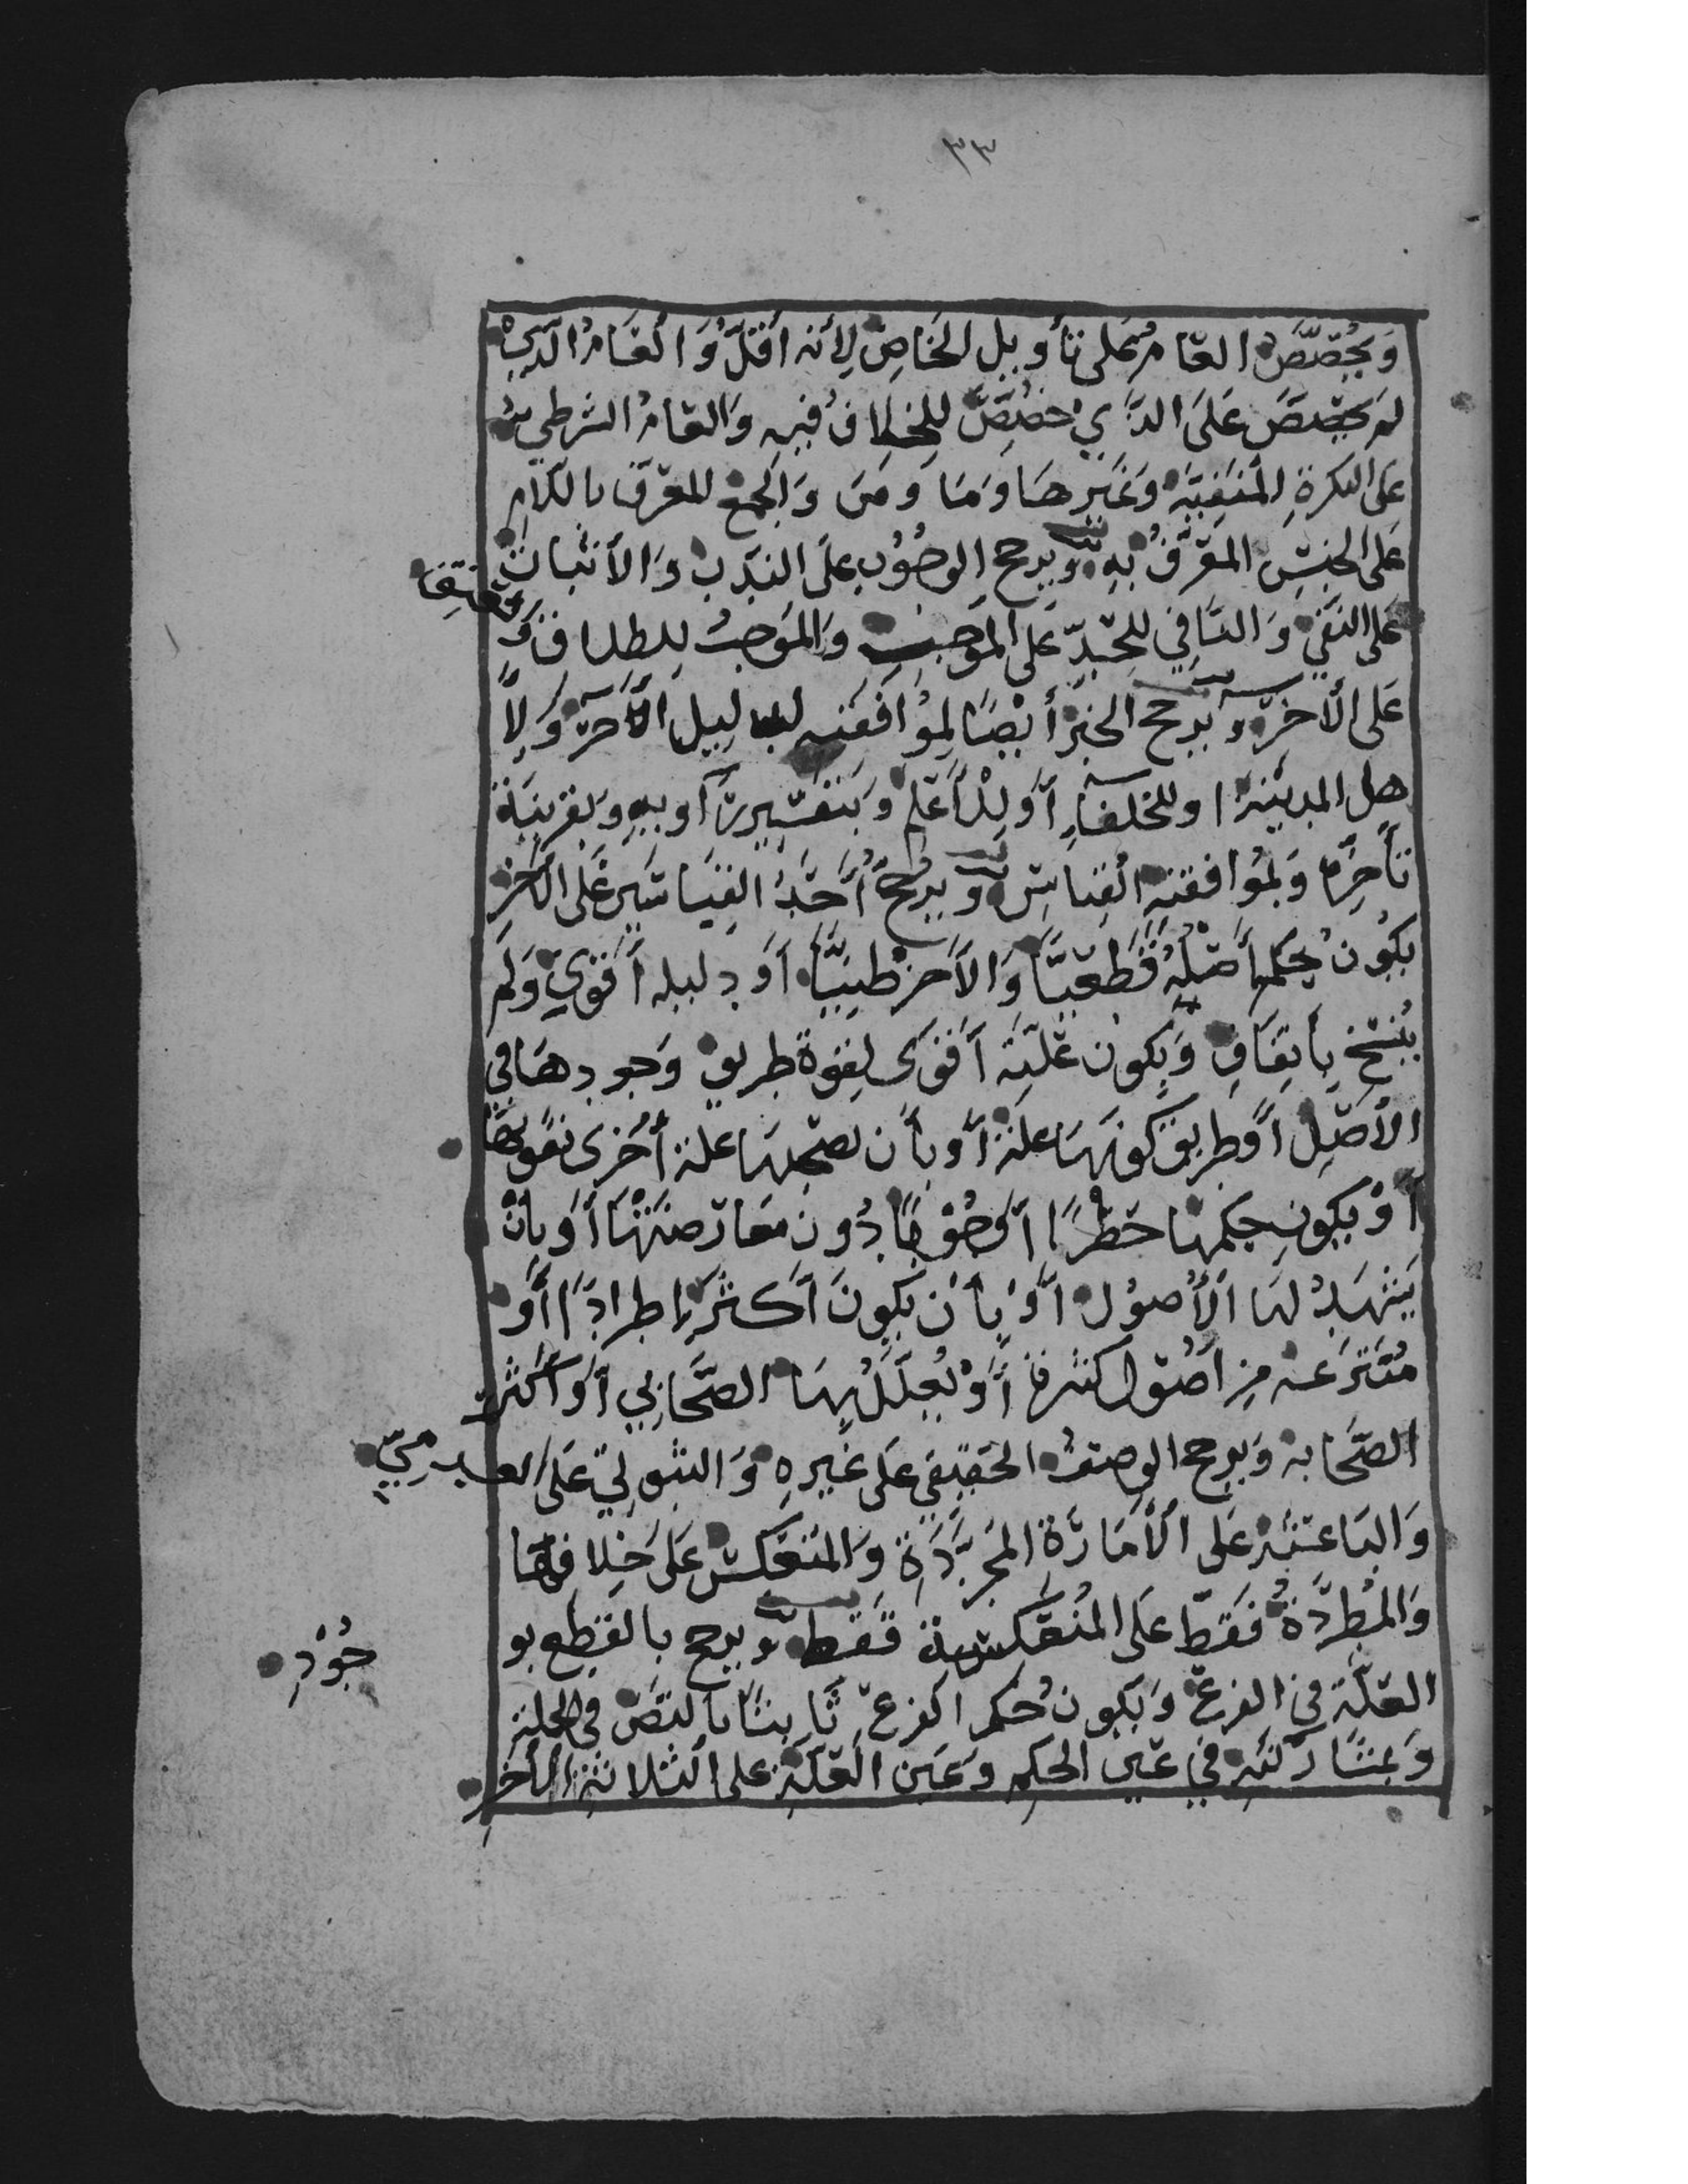 ٣٣
وَتَخصِيصُ العَامِ عَلى تَأويل الخَاصِّ لِأنه أقَلُّ وَالعَامُ الَّذِي
لَم يُخصَّص عَلَى الذَّي خُصِّصَ للخِلافُ فيهِ وَالعَامُ الشرطِي
عَلى النكرةِ المَنفِيَّةِ وَغَيرِهَا وَمَا وَمَن وَالجَمعُ المُعرَّف باللامِ
عَلى الجِنسِ المُعَرَّفُ بِهِ وَيرجح الوجُوب عَلَى النَدب وَالأثبات
عَلى النَفي وَالنَّافِي لِلحَدِّ عَلى المُوجِبِ وَالمُوجِبُ لِلطلاق وَالعِتقِ
عَلى الأخرِ وَيرجح الخبرُ أيضًا لِمُوافَقتِهِ لدليلٍ آخَرَ وَلِأَ
هل المدينة او للخلفَاءِ أو لِلأعلم وَبتَفسِيرِ رَاويهِ وَبقَرينَة
تأخّرِهِ وَبمُوافقتِهِ القياسَ وَيرجحُ أحَدُ القِيَاسَينِ عَلى الأخَرِ
بِكَونِ حُكمِ أصلِهِ قَطعيًّا وَالأخر ظنيًّا أو دليله أقوَى وَلَم
يُنسَخ بِاتِّفَاقٍ وَبِكون عِلَّتِهِ أقوى لِقوة طريق وُجودهَا في
الأصلِ أو طريق كونهَا علة أو بأن تصحبهَا علة أخرى تقوِّيهَا
أو بِكونِ حُكمهَا حَظرًا أو وجُوبًا دُون مُعَارضتهَا أو بأن
يَشهَدُ لهَا الأصُول أو بأن تَكونَ أكثَر اطرادًا أو
مُنتَزعَة مِن أصُول كثيرة أو يُعلِّلُ بِهَا الصَّحَابي أو أكثر
الصَّحَابة وَيرجح الوصفُ الحَقيقي عَلى غَيرهِ وَالثبوتيّ عَلى العدميّ
وَالبَاعثَةُ عَلى الأمَارَةِ المُجَرَّدَةِ وَالمُنعَكسَةِ عَلَى خِلافهَا
وَالمُطرِدَةُ فَقط عَلى المُنعَكسة فَقط وَيرجح بالقَطع بو
جُودِ
العلَّة في الفرع وَبِكون حُكمِ الفرع ثَابتًا بالنص في الجملة
وَبمشَارَكتهِ في عَينِ الحكمِ وَعَينِ العلَّةِ على الثلاثةِ الأخَرِ